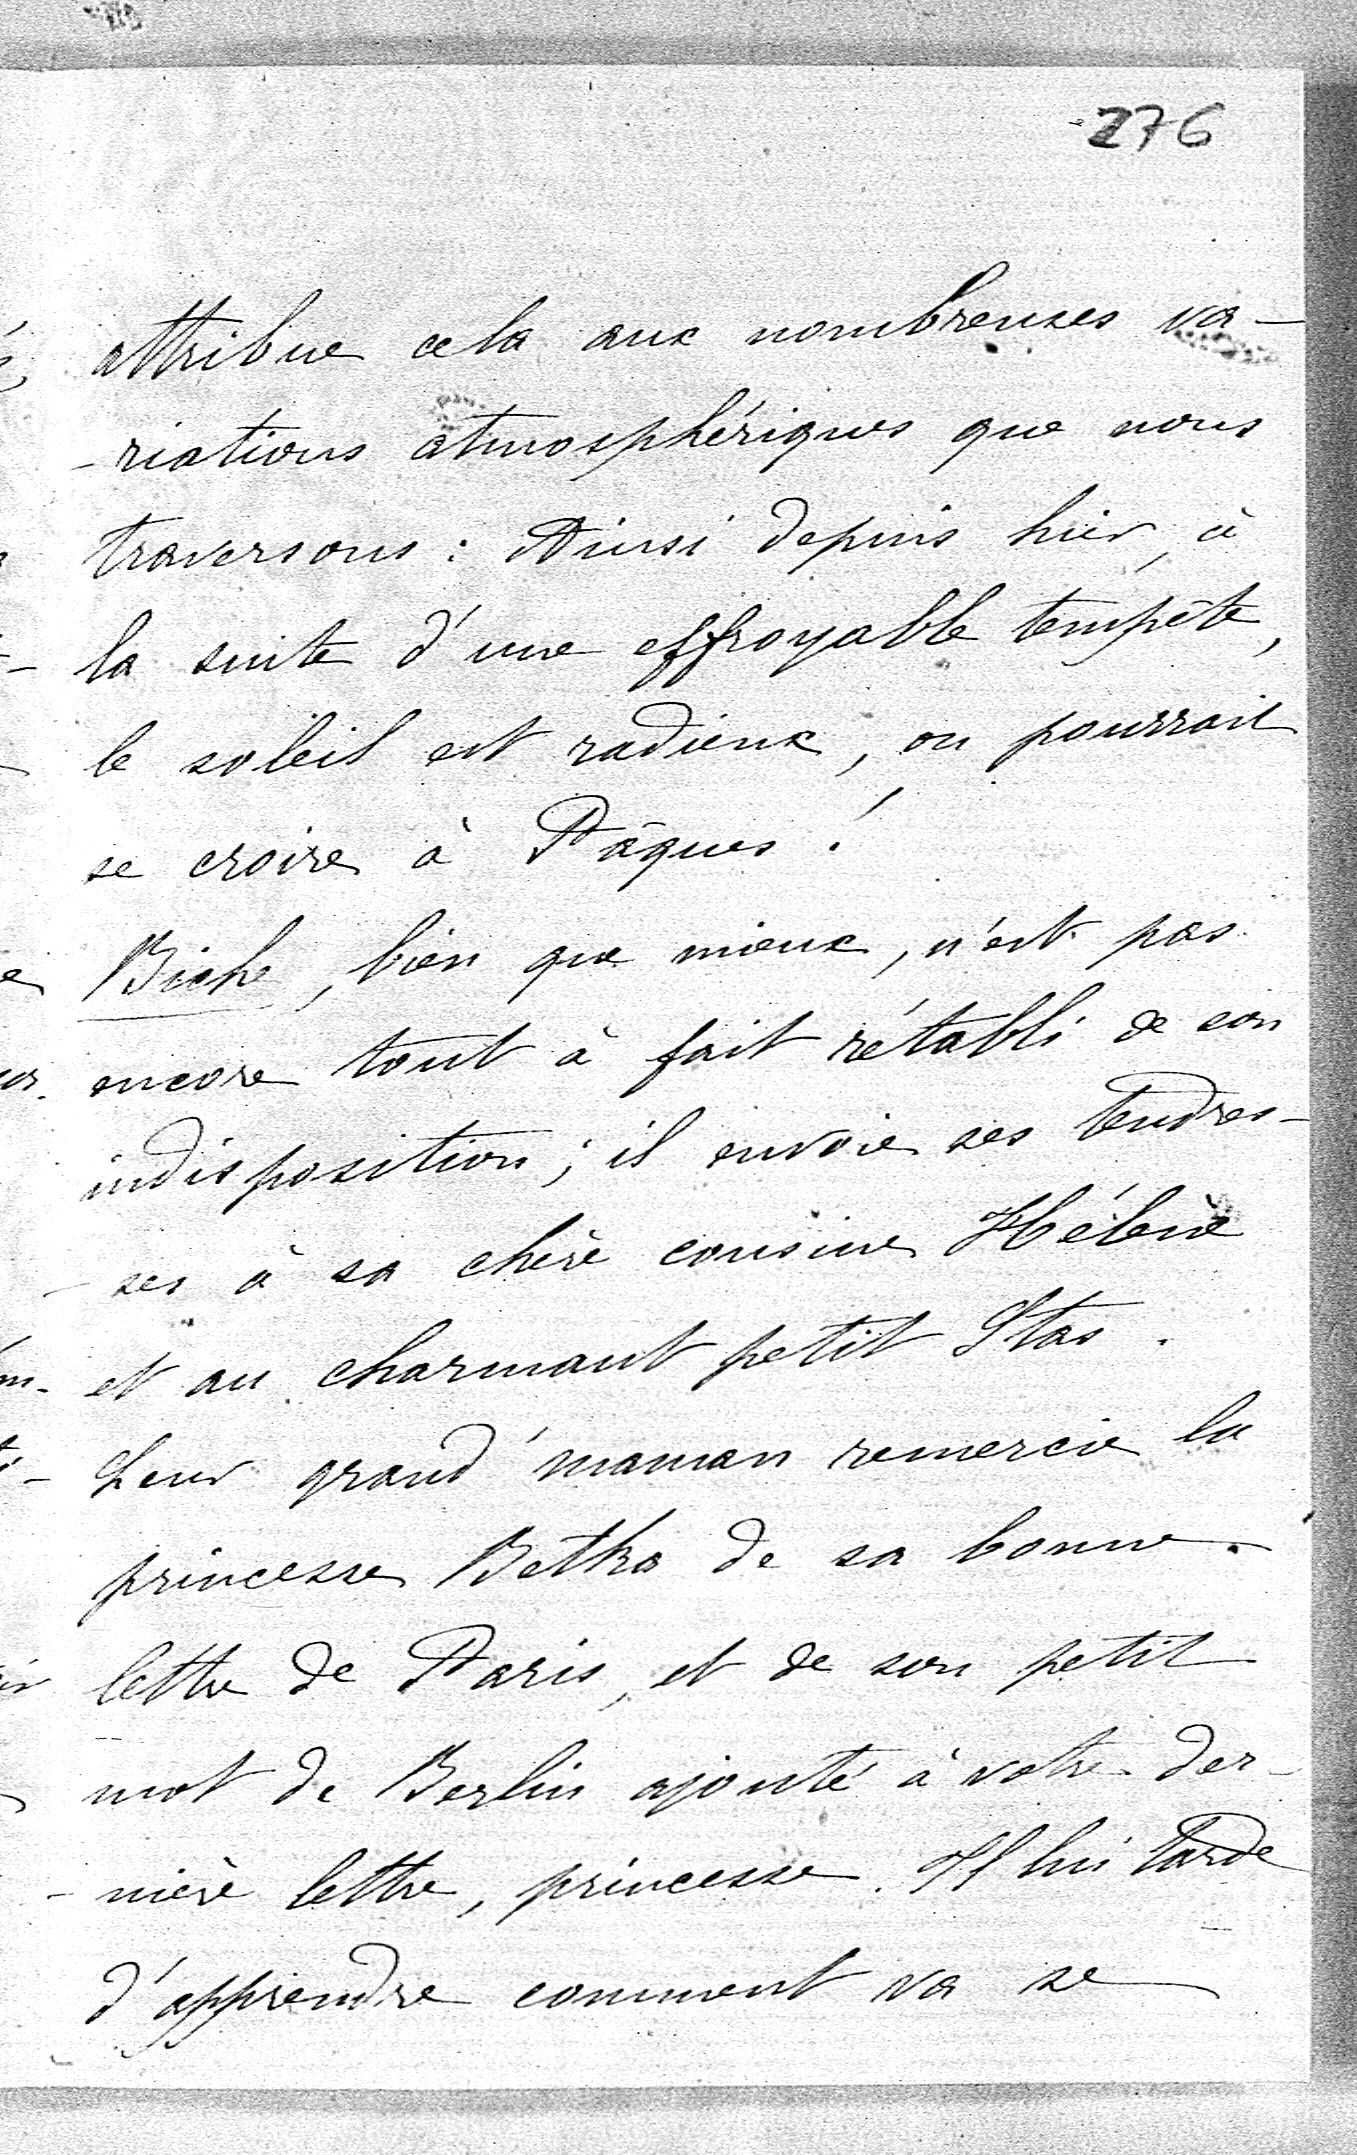 276
attribue cela aux nombreuses va-
-riations atmosphériques que nous
traversons : Ainsi depuis hier, à
la suite d'une effroyable tempête,
le soleil est radieux, on pourrait
se croire à Pâques !
Biche, bien que mieux, n'est pas
encore tout à fait rétabli de son
indisposition ; il envoie ses tendres-
-ses à sa chère cousine Hélène
et au charmant petit Stas.
Leur grand'maman remercie la
princesse Betka de sa bonne
lettre de Paris, et de son petit
mot de Berlin ajouté à votre der-
-nière lettre, princesse. Il lui tarde
d'apprendre comment va se